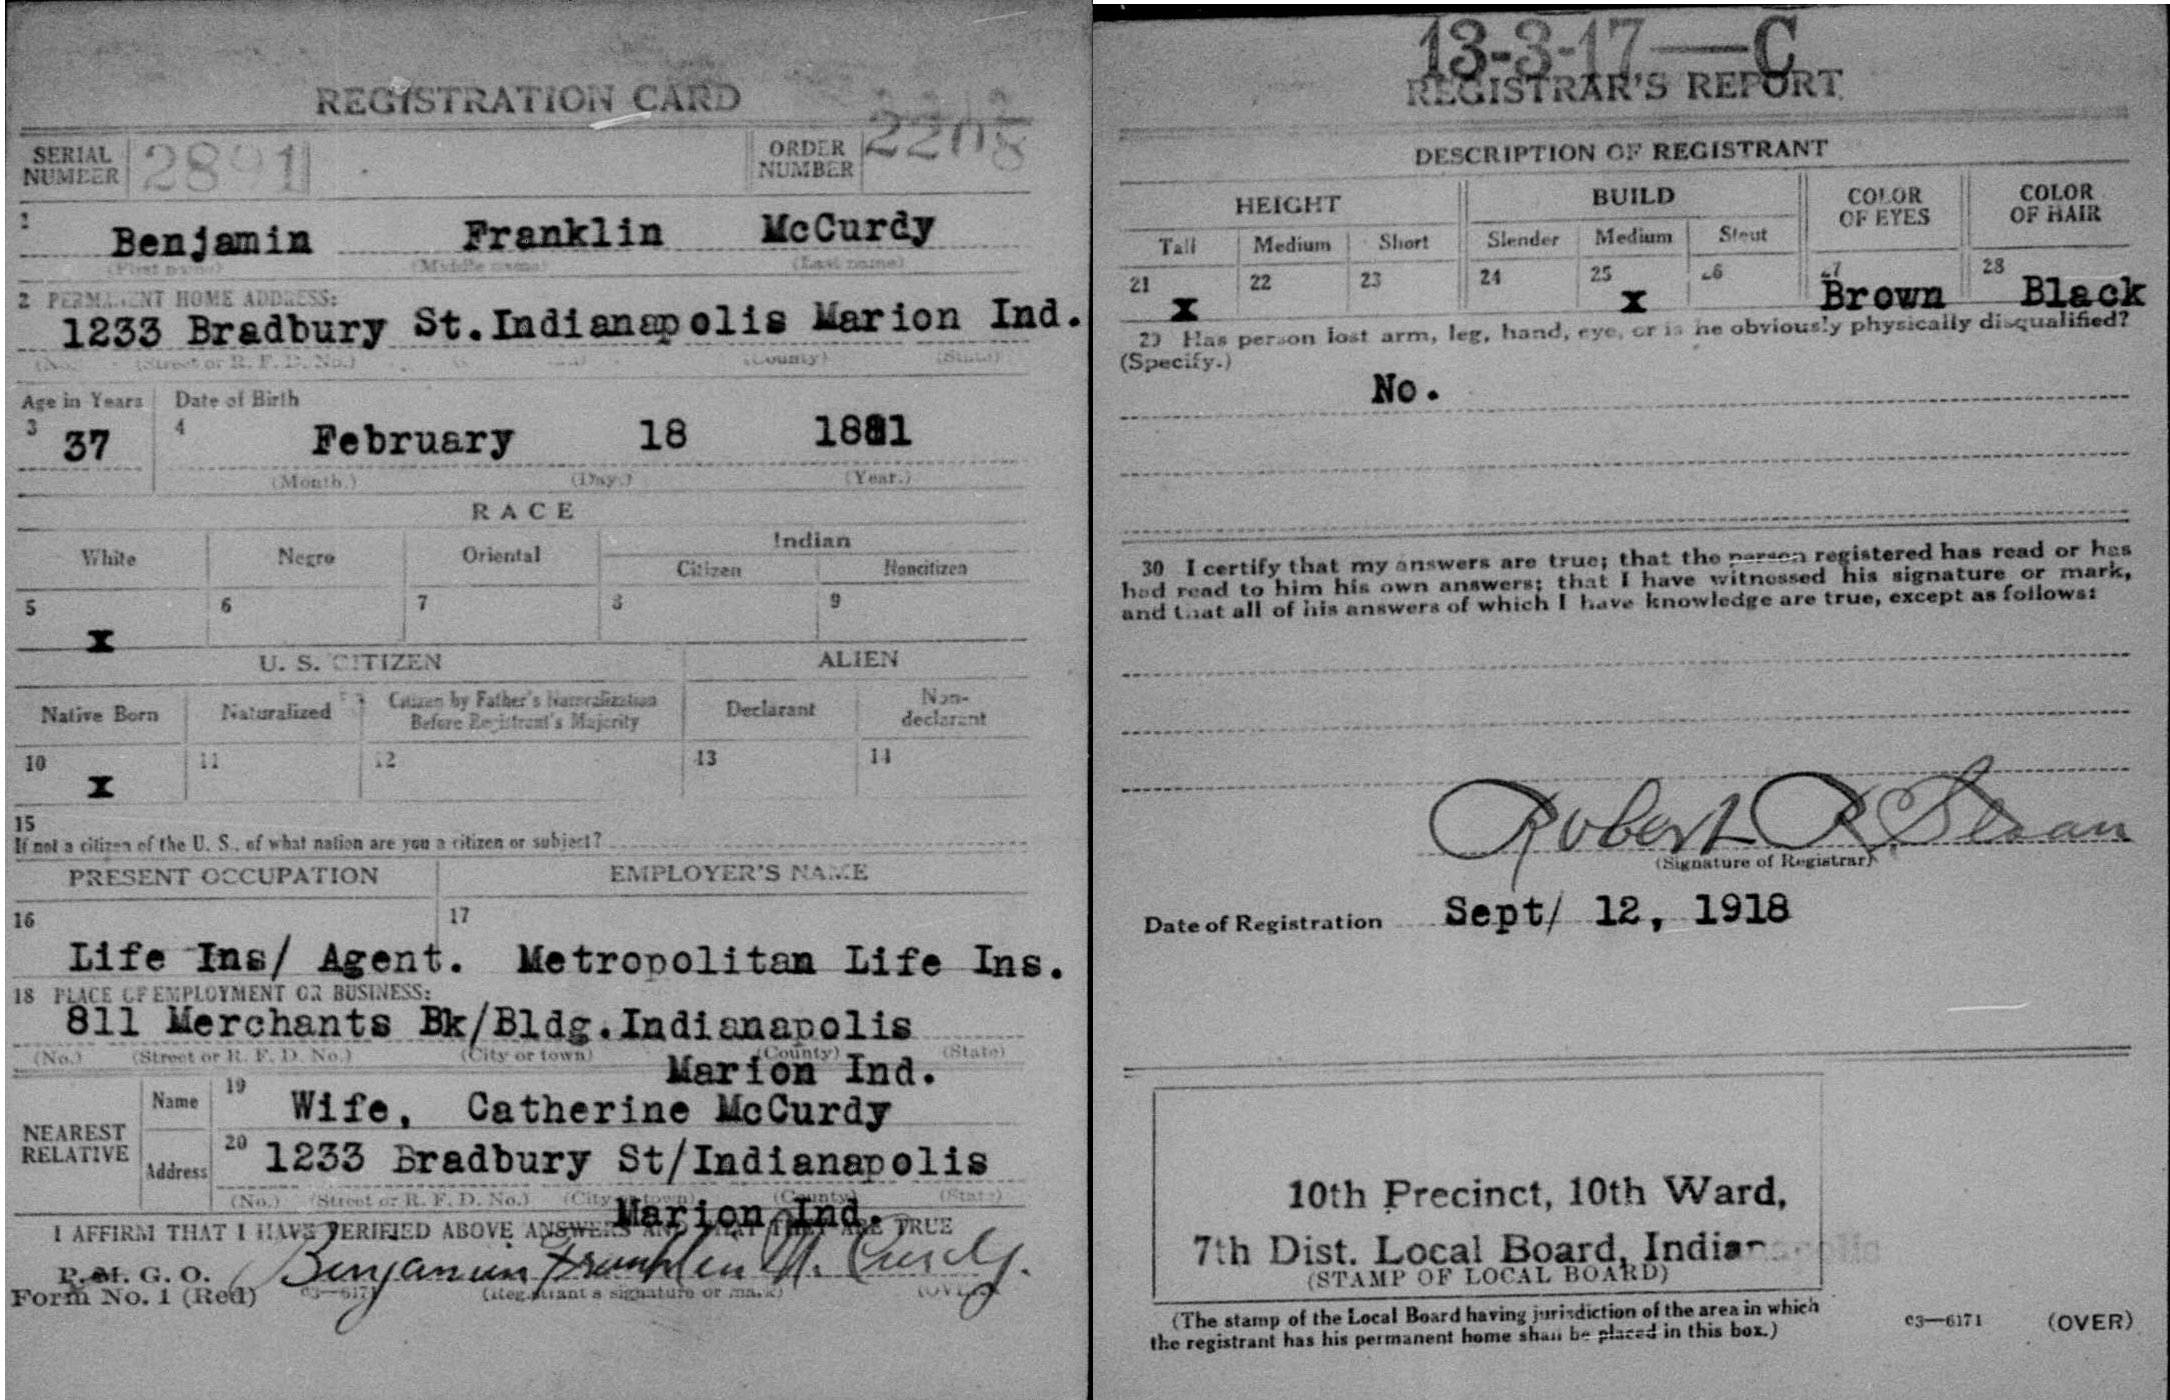 REGISTRATION CARD
SERIAL NUMBER 2891 ORDER NUMBER 2208
1 Benjamin Franklin McCurdy
(First name) (Middle name) (Last name)
2 PERMANENT HOME ADDRESS:
1233 Bradbury St. Indianapolis Marion Ind.
(No.) (Street or R. F. D. No.) (County) (State)
Age in Years Date of Birth
3 37 4 February 18 1881
(Month.) (Day.) (Year.)
RACE
White Negro Oriental Indian
Citizen Noncitizen
5 6 7 8 9
X
U. S. CITIZEN ALIEN
Native Born Naturalized Citizen by Father's Naturalization Before Registrant's Majority Declarant Non-declarant
10 11 12 13 14
X
15
If not a citizen of the U. S., of what nation are you a citizen or subject?
PRESENT OCCUPATION EMPLOYER'S NAME
16 17
Life Ins/ Agent. Metropolitan Life Ins.
18 PLACE OF EMPLOYMENT OR BUSINESS:
811 Merchants Bk/Bldg. Indianapolis
(No.) (Street or R. F. D. No.) (City or town) (County) (State)
Marion Ind.
NEAREST RELATIVE
Name 19 Wife, Catherine McCurdy
Address 20 1233 Bradbury St/Indianapolis
(No.) (Street or R. F. D. No.) (City or town) (County) (State)
Marion Ind.
I AFFIRM THAT I HAVE VERIFIED ABOVE ANSWERS AND THAT THEY ARE TRUE
P. M. G. O.
Form No. 1 (Red) c3—6171 Benjamin Franklin McCurdy.
(Registrant's signature or mark) (OVER)
13-3-17—C
REGISTRAR'S REPORT
DESCRIPTION OF REGISTRANT
HEIGHT BUILD COLOR OF EYES COLOR OF HAIR
Tall Medium Short Slender Medium Stout
21 22 23 24 25 26 27 28
X X Brown Black
29 Has person lost arm, leg, hand, eye, or is he obviously physically disqualified?
(Specify.)
No.
30 I certify that my answers are true; that the person registered has read or has
had read to him his own answers; that I have witnessed his signature or mark,
and that all of his answers of which I have knowledge are true, except as follows:
Robert R. Sloan
(Signature of Registrar)
Date of Registration Sept/ 12, 1918
10th Precinct, 10th Ward,
7th Dist. Local Board, Indianapolis
(STAMP OF LOCAL BOARD)
(The stamp of the Local Board having jurisdiction of the area in which
the registrant has his permanent home shall be placed in this box.)
c3—6171 (OVER)